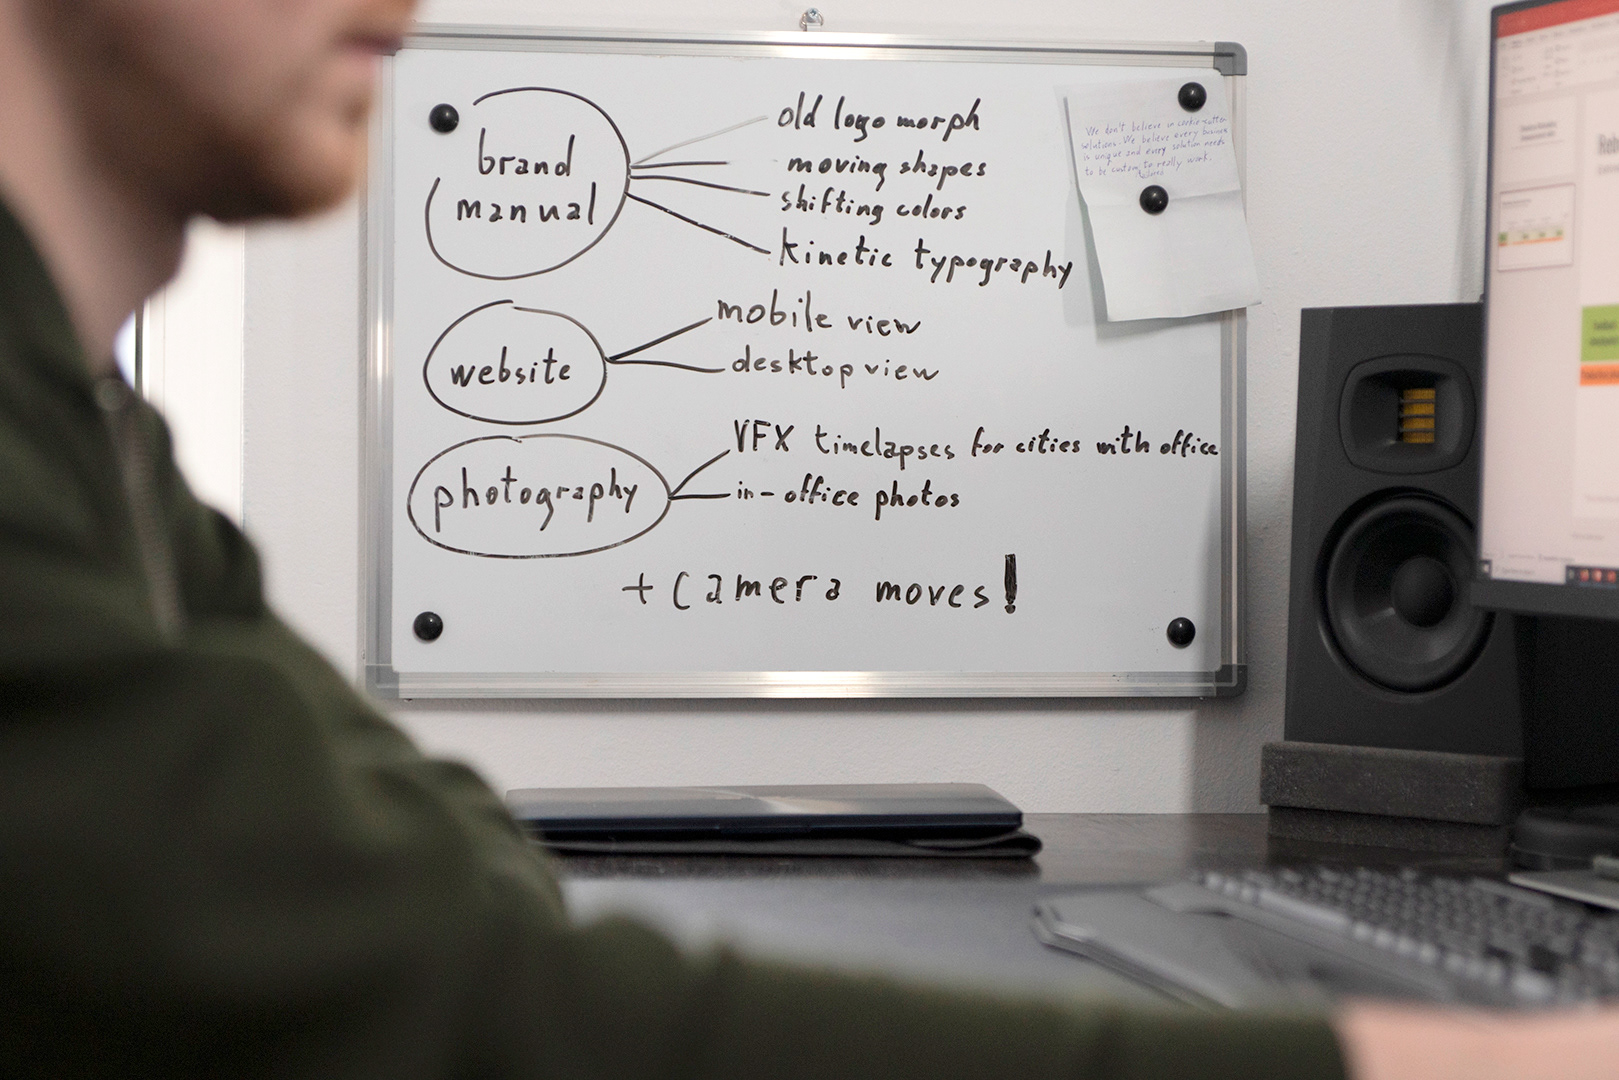 brand
manual
old logo morph
moving shapes
shifting colors
kinetic typography
website
mobile view
desktop view
photography
VFX timelapses for cities with office
in-office photos
+ Camera moves!
We don't believe in cookie-cutter
solutions. We believe every business
is unique and every solution needs
to be custom to really work.
tailored